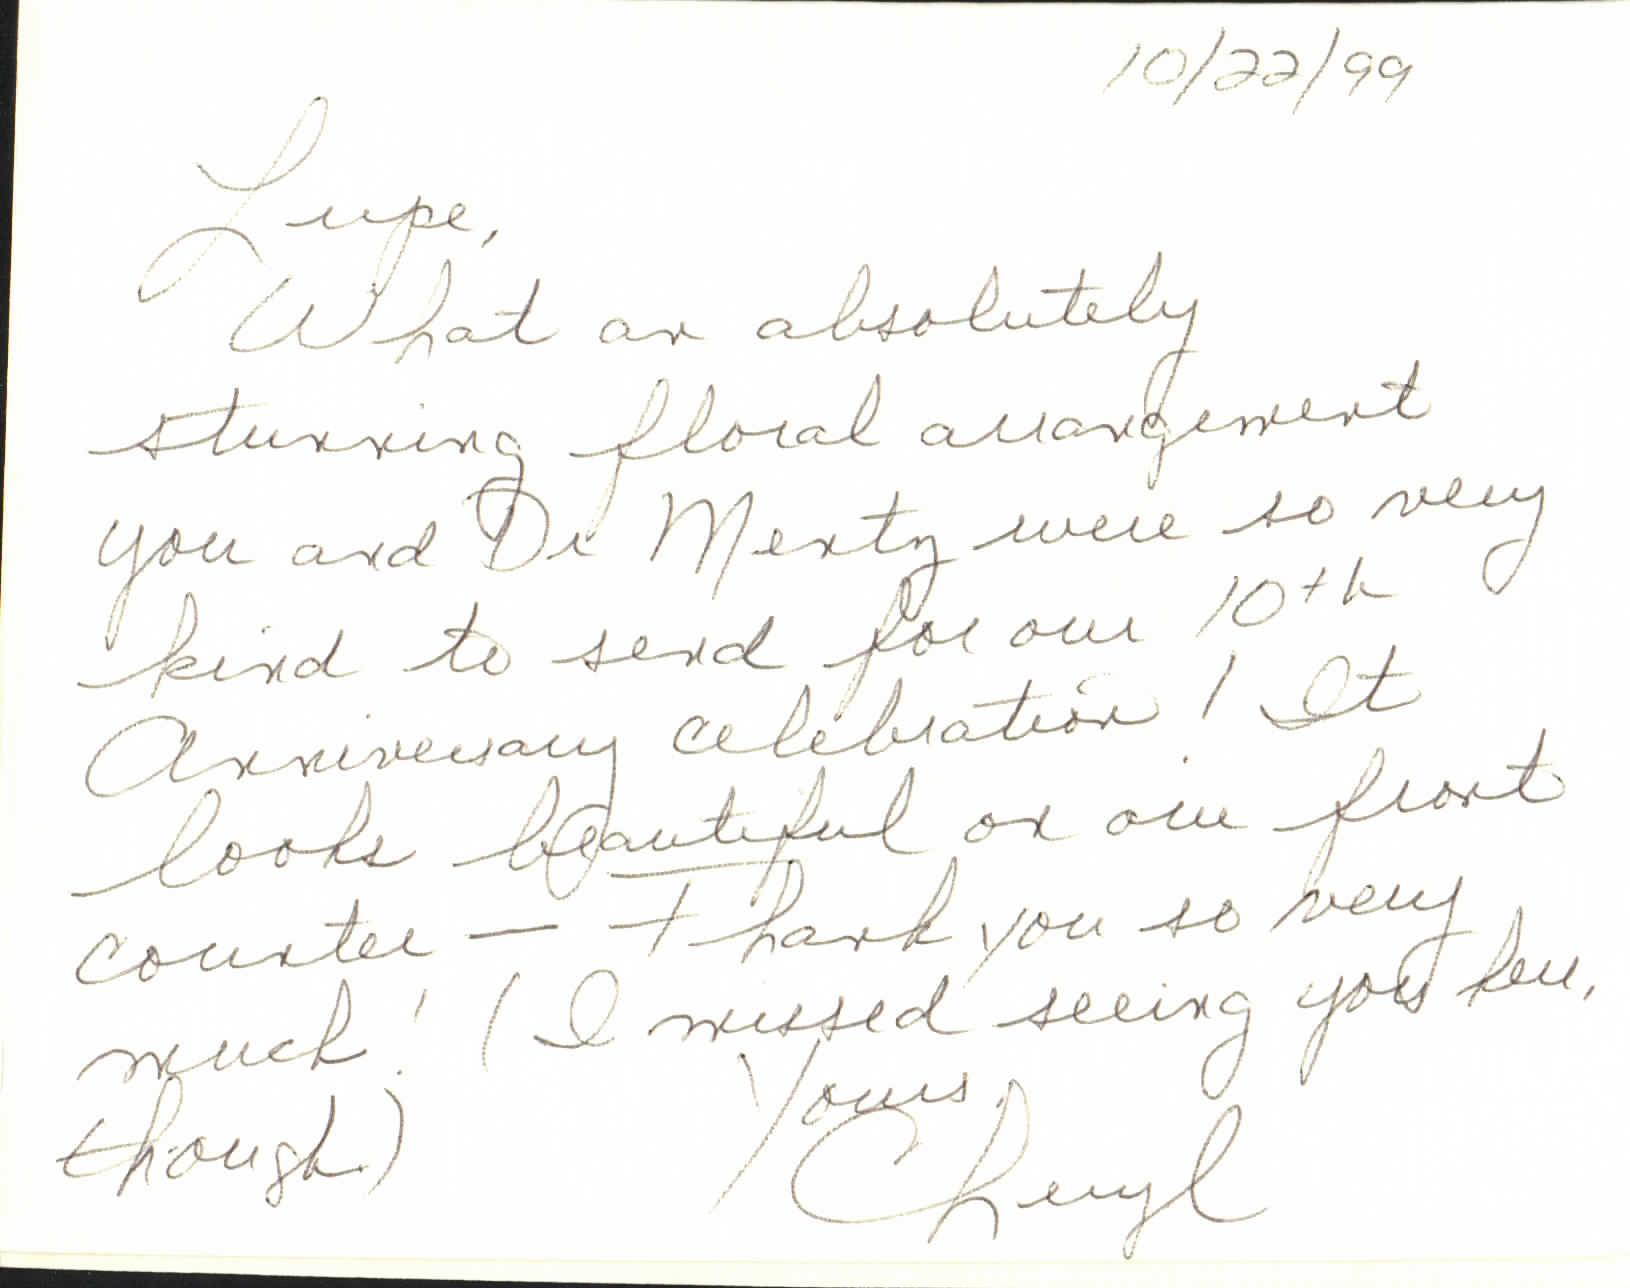 10/22/99
Lupe,
What an absolutely
stunning floral arrangement
you and Dr Mentz were so very
kind to send for our 10th
Anniversary celebration! It
looks beautiful on our front
counter — Thank you so very
much! (I missed seeing you here,
though.)
Yours,
Cheryl